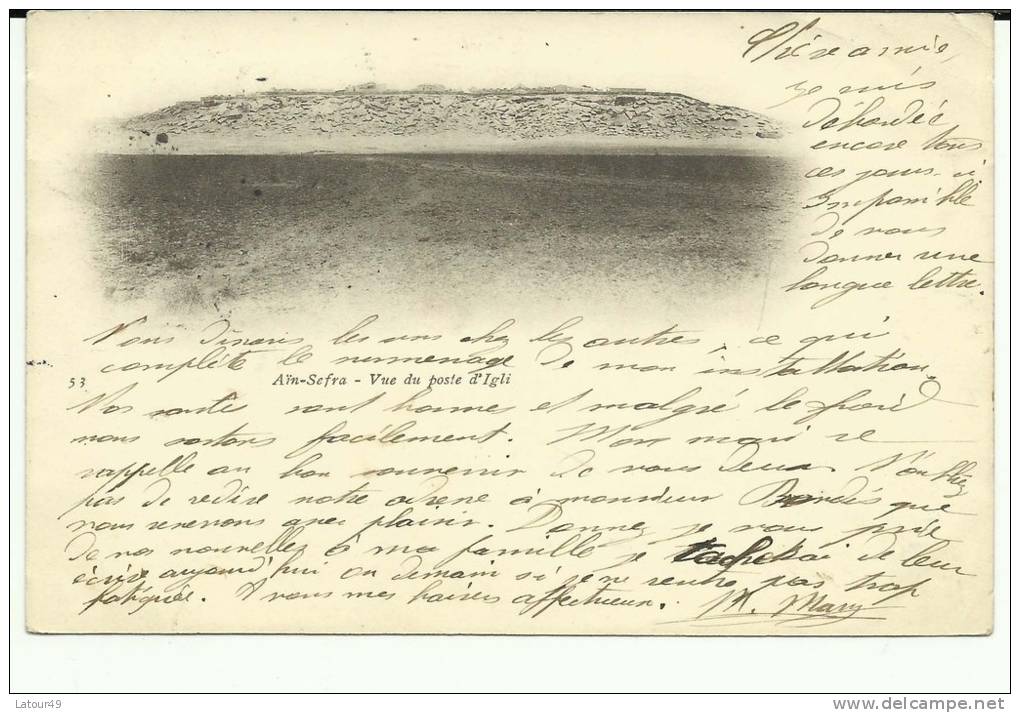 Chère amie,
je suis
débordée
encore tous
ces jours-ci
Impossible
de vous
donner une
longue lettre.
Nous dînons les uns chez les autres, ce qui
complète le surmenage de mon installation.
53 Aïn-Sefra - Vue du poste d'Igli
Nos santés sont bonnes et malgré le froid
nous sortons facilement. Mon mari se
rappelle au bon souvenir de vous deux. N'oubliez
pas de redire notre adresse à monsieur que
nous reverrons avec plaisir. Donnez je vous prie
de vos nouvelles à ma famille je tacherai de leur
écrire aujourd'hui ou demain si je ne rentre pas trop
fatiguée. A vous mes baisers affectueux. M. Mary
Latour49
delcampe.net